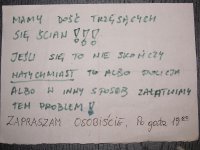 MAMY DOŚĆ TRZĘSĄCYCH
SIĘ ŚCIAN!!!
JEŚLI SIĘ TO NIE SKOŃCZY
NATYCHMIAST TO ALBO POLICJA
ALBO W INNY SPOSÓB ZAŁATWIMY
TEN PROBLEM!
ZAPRASZAM OSOBIŚCIE, Po godz 19